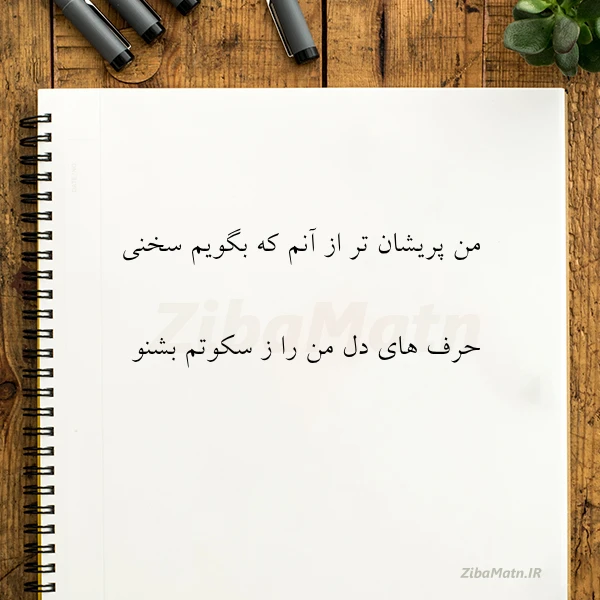 من پریشان تر از آنم که بگویم سخنی
ZibaMatn
حرف های دل من را ز سکوتم بشنو
ZibaMatn.IR